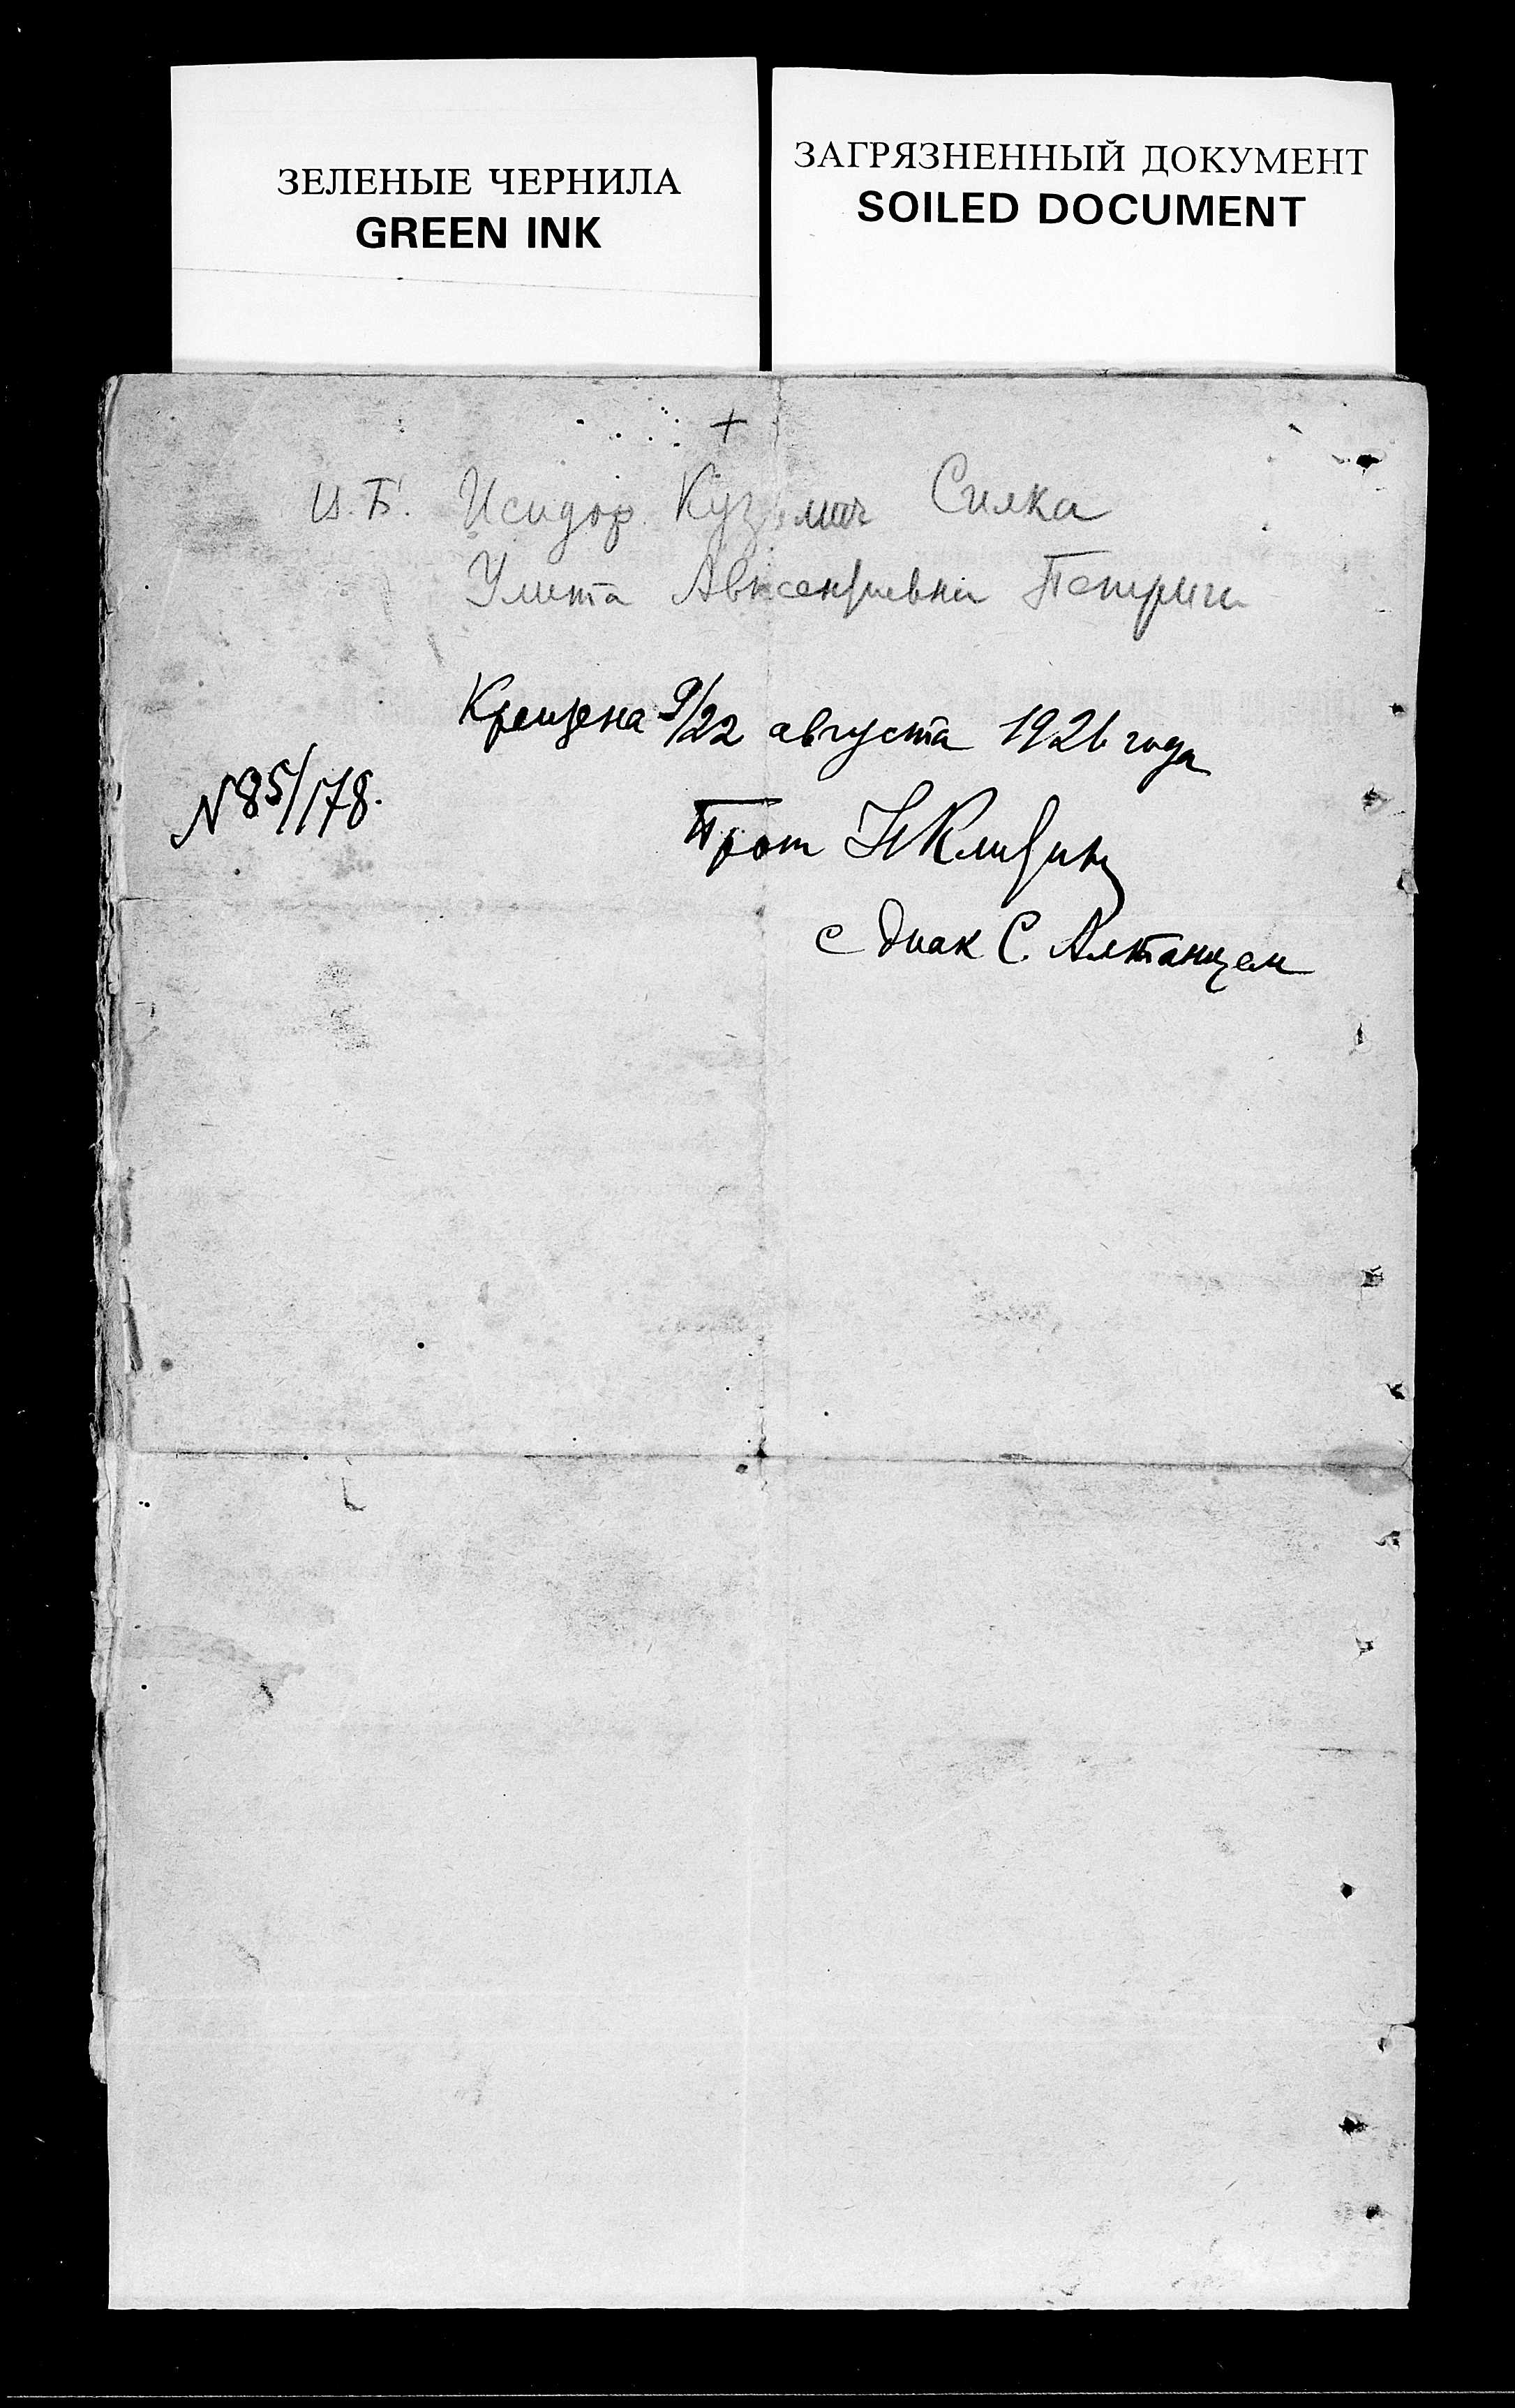 ЗЕЛЕНЫЕ ЧЕРНИЛА
GREEN INK
ЗАГРЯЗНЕННЫЙ ДОКУМЕНТ
SOILED DOCUMENT
Исидор Кузьмич Силка
Улита Авксентиевна
Крещена 9/22 августа 1926 года
N 85/178.
Прот
с диак С. Алтанцем